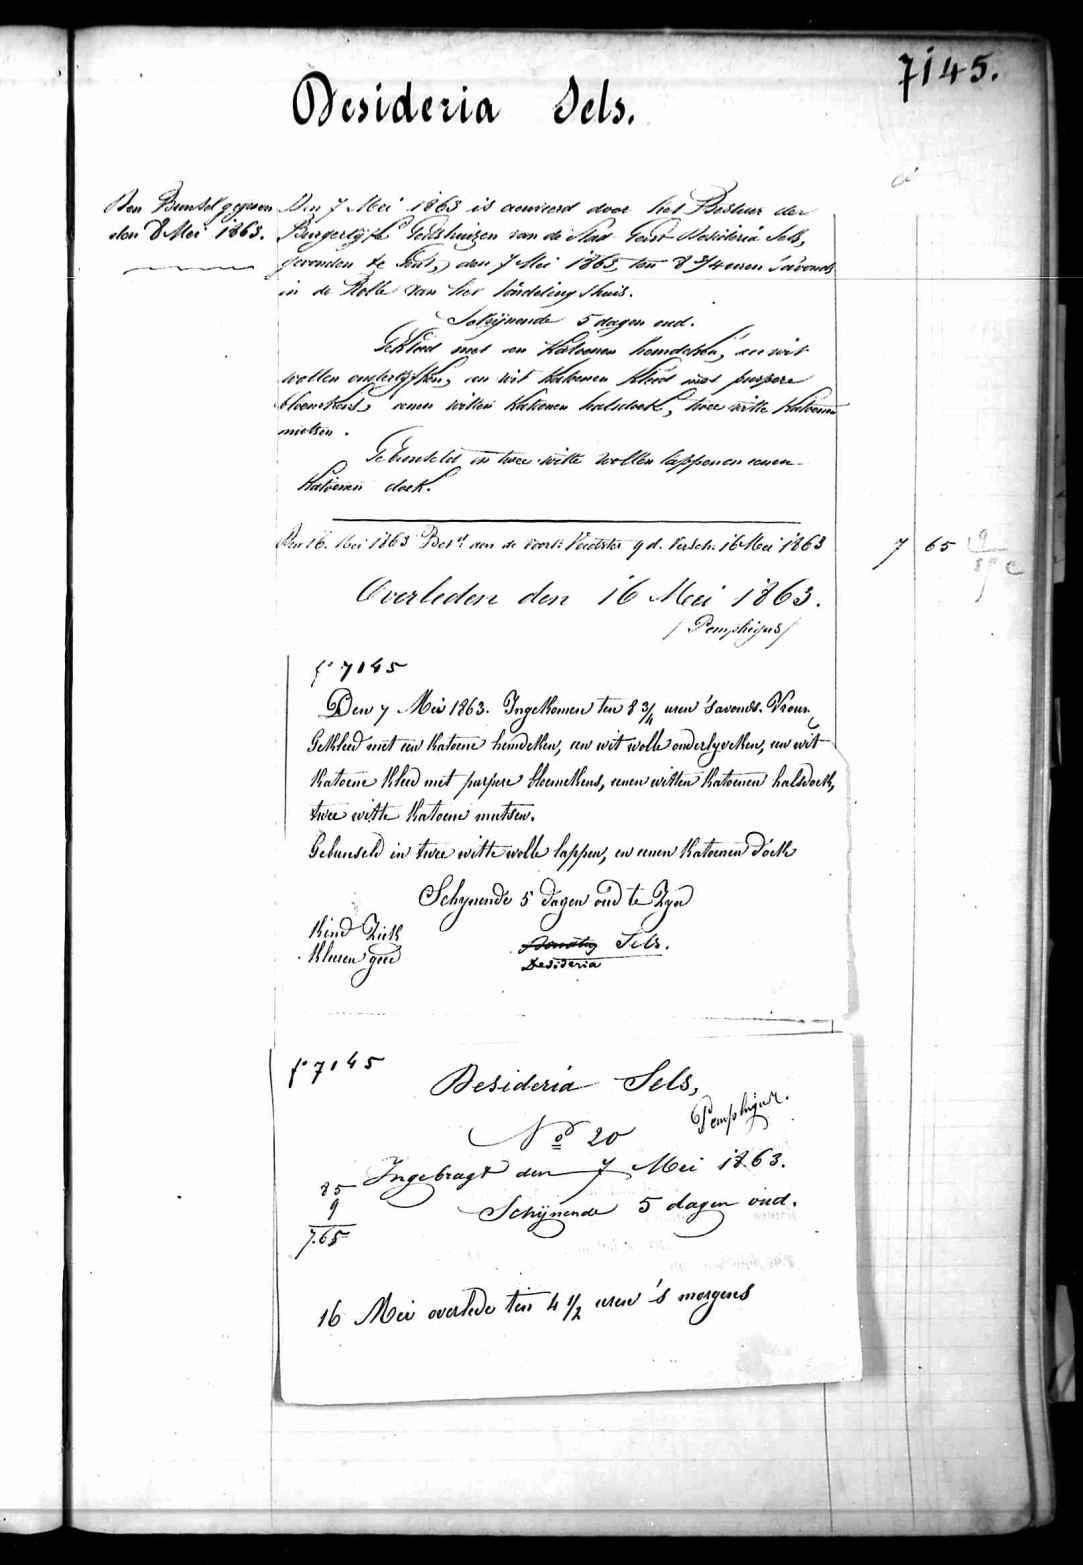 7145.
Desideria Sels.
Den Bunsel gegeven
den 8 Mei 1863.
Den 7 Mei 1863 is aenveerd door het Bestuer der
Burgerlijke Godshuizen van de Stad Gent Desideria Sels,
gevonden te Gent, den 7 Mei 1863, ten 8 3/4 uren 's avonds
in de Rolle van het Vondelingshuis.
Schijnende 5 dagen oud.
Gekleed met een Katoenen hemdeken, een wit
wollen onderlijfken, een wit Katoenen Kleed met purpere
bloemekens, eenen witten Katoenen halsdoek, twee witte Katoenen
mutsen.
Gebunseld in twee witte wollen lappen en eenen
Katoenen doek.
Den 16 Mei 1863 Bet. aen de voorl. Voedster 9 d. versch. 16 Mei 1863 7 65
Overleden den 16 Mei 1863.
/ Pemphigus /
f° 7145
Den 7 Mei 1863. Ingekomen ten 8 3/4 uren 's avonds. Vrouw.
Gekleed met een Katoene hemdeken, een wit wolle onderlyveken, een wit
Katoene Kleed met purpere bloemekens, eenen witten Katoenen halsdoek,
twee witte Katoene mutsen.
Gebunseld in twee witte wolle lappen, en eenen Katoenen doek
Schynende 5 dagen oud te Zyn
Kind Ziek
Kleeren goed
Sels.
Desideria
f° 7145
Desideria Sels,
Pemphigus.
N° 20
Ingebragt den 7 Mei 1863.
85
9
7.65
Schijnende 5 dagen oud.
16 Mei overlede ten 4 1/2 uren 's morgens